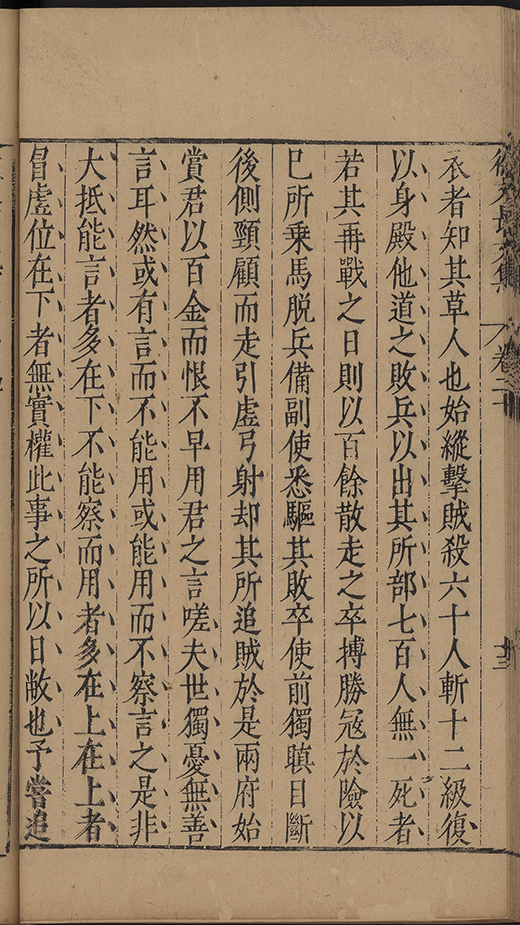 徐文長文集 卷二十 十三
衣者知其草人也始縱擊賊殺六十人斬十二級復
以身殿他道之敗兵以出其所部七百人無一死者
若其再戰之日則以百餘散走之卒搏勝寇於險以
己所乘馬脫兵備副使悉驅其敗卒使前獨瞋目斷
後側頸顧而走引虛弓射却其所追賊於是兩府始
賞君以百金而恨不早用君之言嗟夫世獨憂無善
言耳然或有言而不能用或能用而不察言之是非
大抵能言者多在下不能察而用者多在上在上者
冒虛位在下者無實權此事之所以日敝也予嘗追